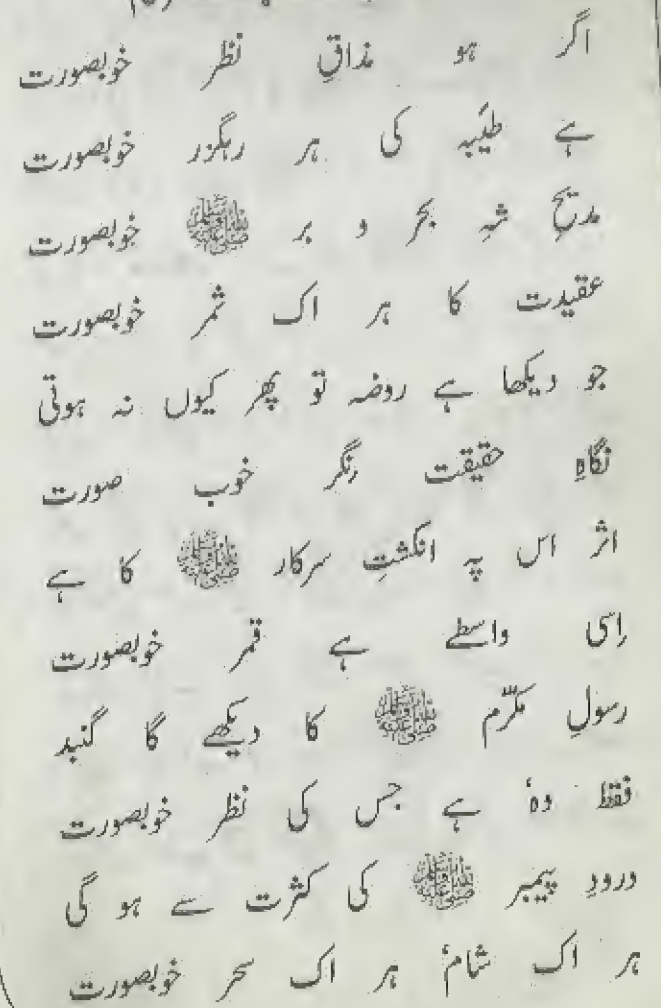 اگر ہو مذاقِ نظر خوبصورت
ہے طیبہ کی ہر رہگزر خوبصورت
مدیحِ شہِ بحر و بر ﷺ خوبصورت
عقیدت کا ہر اک ثمر خوبصورت
جو دیکھا ہے روضہ تو پھر کیوں نہ ہوتی
نگاہِ حقیقت نگر خوب صورت
اثر اس پہ انگشتِ سرکار ﷺ کا ہے
اِسی واسطے ہے قمر خوبصورت
رسولِ مکرّم ﷺ کا دیکھے گا گنبد
فقط وہ ہے جس کی نظر خوبصورت
درودِ پیمبر ﷺ کی کثرت سے ہو گی
ہر اک شام' ہر اک سحر خوبصورت